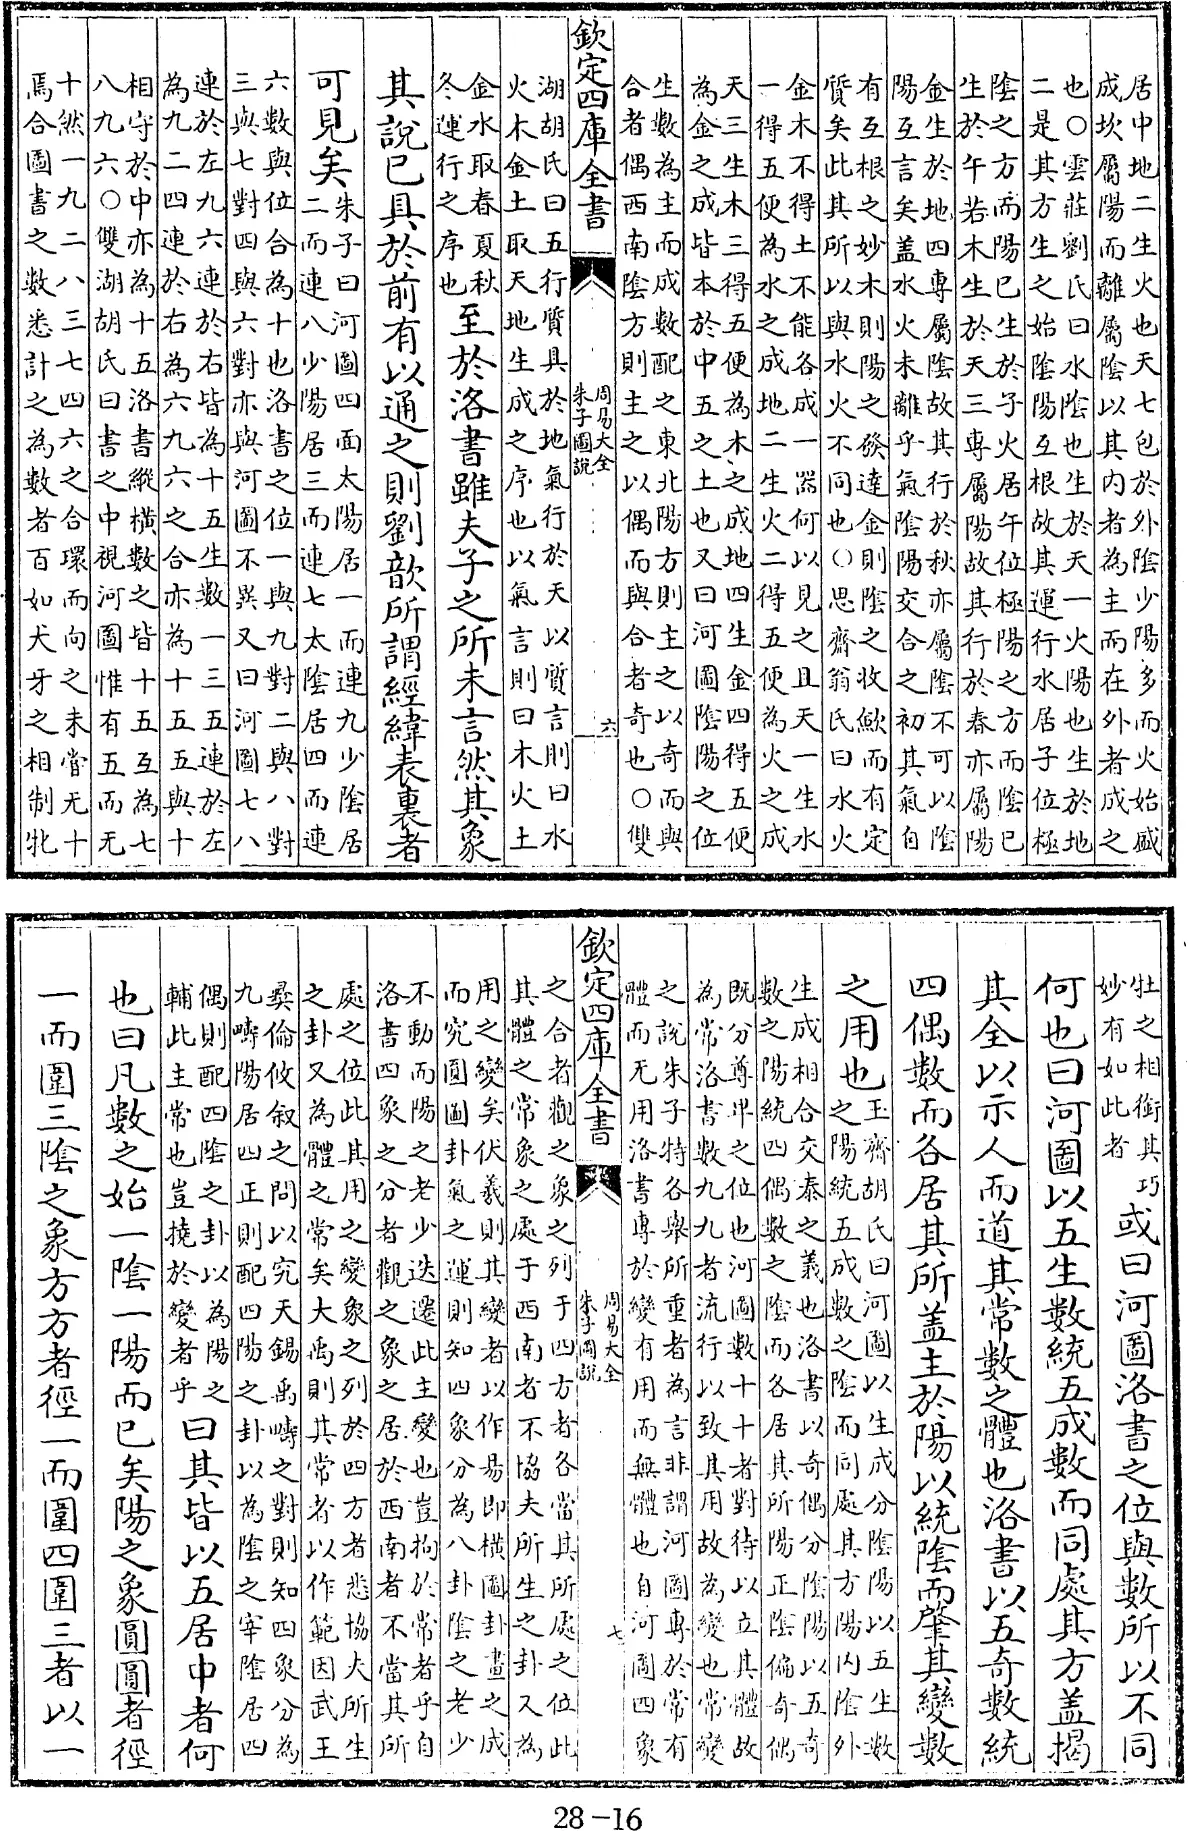 居中地二生火也天七包於外陰少陽多而火始盛
成坎屬陽而離屬陰以其内者為主而在外者成之
也○雲莊劉氏曰水陰也生於天一火陽也生於地
二是其方生之始陰陽互根故其運行水居子位極
陰之方而陽已生於子火居午位極陽之方而陰已
生於午若木生於天三專屬陽故其行於春亦屬陽
金生於地四專屬陰故其行於秋亦屬陰不可以陰
陽互言矣盖水火未離乎氣陰陽交合之初其氣自
有互根之妙木則陽之發達金則陰之收歛而有定
質矣此其所以與水火不同也○思齋翁氏曰水火
金木不得土不能各成一器何以見之且天一生水
一得五便為水之成地二生火二得五便為火之成
天三生木三得五便為木之成地四生金四得五便
為金之成皆本於中五之土也又曰河圖陰陽之位
生數為主而成數配之東北陽方則主之以奇而與
合者偶西南陰方則主之以偶而與合者奇也○雙
欽定四庫全書
周易大全
朱子圖說
六
湖胡氏曰五行質具於地氣行於天以質言則曰水
火木金土取天地生成之序也以氣言則曰木火土
金水取春夏秋
冬運行之序也
至於洛書雖夫子之所未言然其象
其說已具於前有以通之則劉歆所謂經緯表裏者
可見矣
朱子曰河圖四面太陽居一而連九少陰居
二而連八少陽居三而連七太陰居四而連
六數與位合為十也洛書之位一與九對二與八對
三與七對四與六對亦與河圖不異又曰河圖七八
連於左九六連於右皆為十五生數一三五連於左
為九二四連於右為六九六之合亦為十五五與十
相守於中亦為十五洛書縱橫數之皆十五互為七
八九六○雙湖胡氏曰書之中視河圖惟有五而无
十然一九二八三七四六之合環而向之未嘗无十
焉合圖書之數悉計之為數者百如犬牙之相制牝
牡之相銜其巧
妙有如此者
或曰河圖洛書之位與數所以不同
何也曰河圖以五生數統五成數而同處其方盖揭
其全以示人而道其常數之體也洛書以五奇數統
四偶數而各居其所盖主於陽以統陰而肇其變數
之用也
玉齋胡氏曰河圖以生成分陰陽以五生數
之陽統五成數之陰而同處其方陽内陰外
生成相合交泰之義也洛書以奇偶分陰陽以五奇
數之陽統四偶數之陰而各居其所陽正陰偏奇偶
既分尊卑之位也河圖數十十者對待以立其體故
為常洛書數九九者流行以致其用故為變也常變
之說朱子特各舉所重者為言非謂河圖專於常有
體而无用洛書專於變有用而無體也自河圖四象
欽定四庫全書
周易大全
朱子圖說
七
之合者觀之象之列于四方者各當其所處之位此
其體之常象之處于西南者不協夫所生之卦又為
用之變矣伏羲則其變者以作易即横圖卦畫之成
而究圓圖卦氣之運則知四象分為八卦陰之老少
不動而陽之老少迭遷此主變也豈拘於常者乎自
洛書四象之分者觀之象之居於西南者不當其所
處之位此其用之變象之列於四方者悉協夫所生
之卦又為體之常矣大禹則其常者以作範因武王
彛倫攸叙之問以究天錫禹疇之對則知四象分為
九疇陽居四正則配四陽之卦以為陰之宰陰居四
偶則配四陰之卦以為陽之
輔此主常也豈撓於變者乎
曰其皆以五居中者何
也曰凡數之始一陰一陽而已矣陽之象圓圓者徑
一而圍三陰之象方方者徑一而圍四圍三者以一
28-16